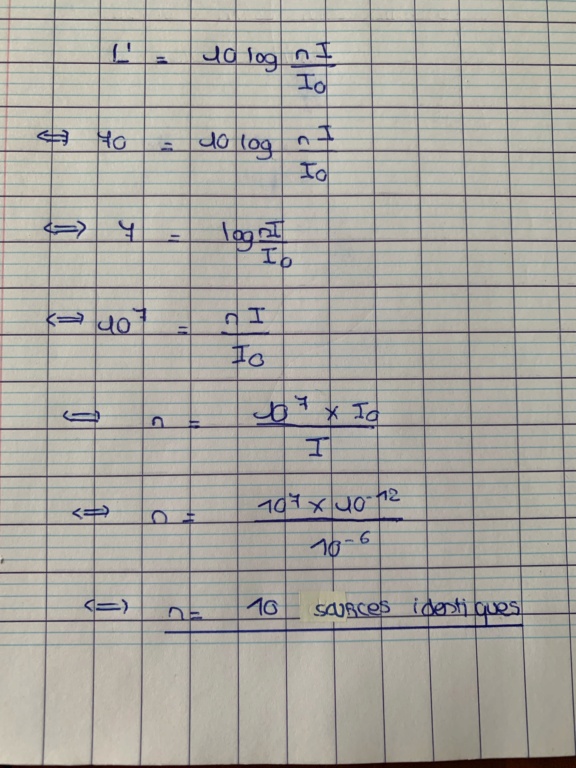 L' = 10 log nI/I₀
⇔ 70 = 10 log nI/I₀
⇔ 7 = log nI/I₀
⇔ 10⁷ = nI/I₀
⇔ n = 10⁷ × I₀/I
⇔ n = 10⁷ × 10⁻¹²/10⁻⁶
⇔ n = 10 sources identiques